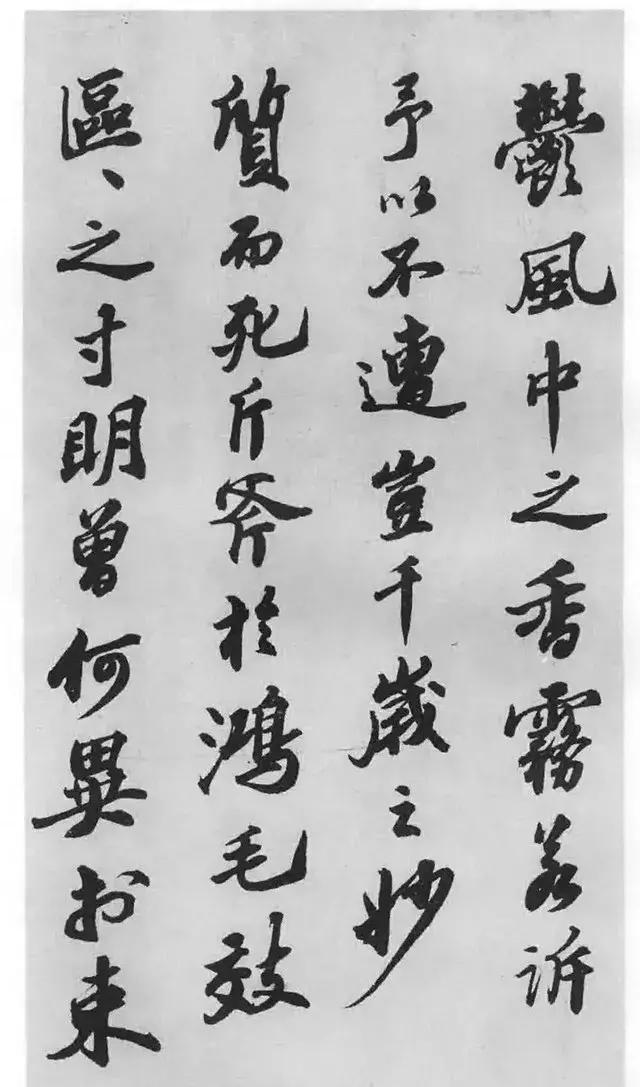 鬱風中之香霧若訴
予以不遭豈千歲之妙
質而死斤斧於鴻毛效
區〻之寸明曾何異於束